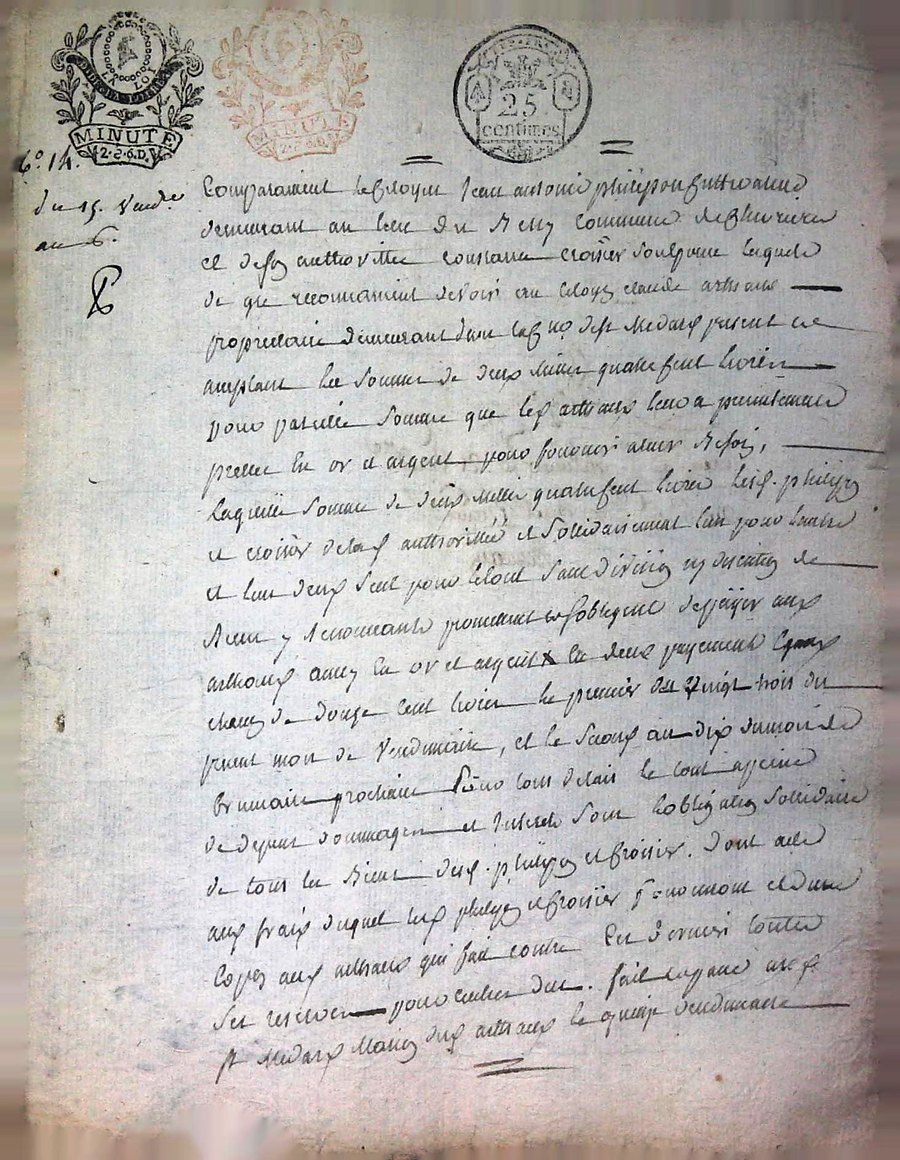 LA LOI
MINUTE
2.S.6.D.
MINUTE
2.S.6.D.
25
centimes
du 15. Vendre
an 6.
Comparaissent le Citoyen Jean antoine philipon cultivateur
demeurant au lieu du commune de
et authorisée constance croisier son epouse laquelle
de gre reconnaissent devoir au Citoyen claude arthaud
propriétaire demeurant dans la de st Medard present et
acceptant la somme de deux mille quatre cent livres
pour pareille somme que led arthaud leur a presentement
pretté en or et argent pour
Laquelle somme de deux mille quatre cent livres lesd. philipon
et croisier de lad authorité et solidairement l'un pour l'autre
et l'un deux seul pour le tout sans division ny discution de
biens y renonceants promettent et s'obligent de payer aud
arthaud en or et argent en deux payements egaux
chacun de douze cent livres le premier au vingt trois du
present mois de Vendemiaire, et le second au dix du mois de
brumaire prochain pour tous delais le tout a peine
de depens dommages et interets sous l'obligation solidaire
de tous les biens desd. philipon et Croisier. Dont acte
aux frais duquel lesd philipon et Croisier et d'une
Copie aud arthaud qui fait contre les derniers toutes
ses reserves pour autres dus. fait et passé aud
st Medard Maison dud arthaud le quinze Vendemiaire